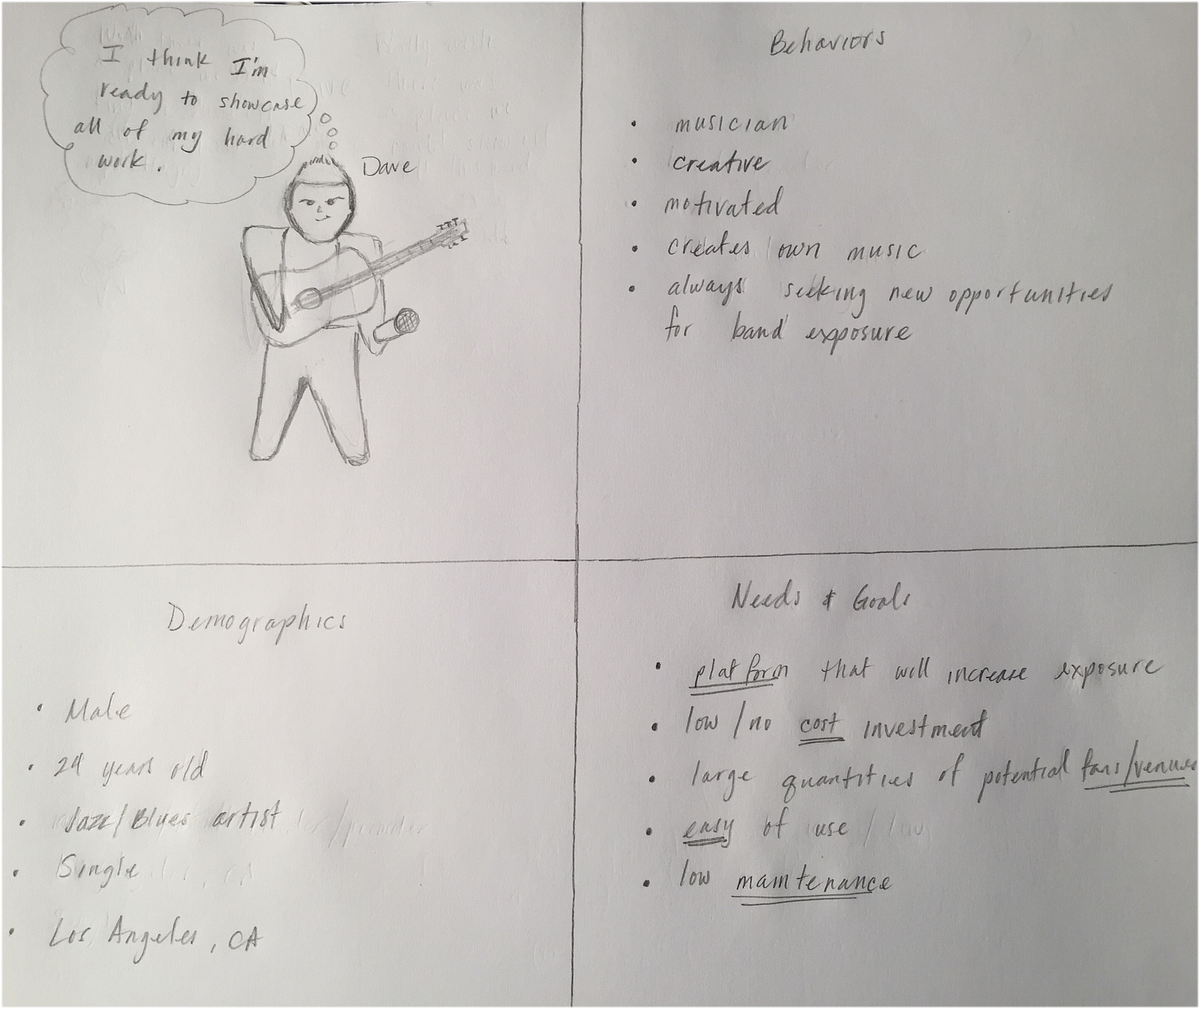 I think I'm
ready to showcase
all of my hard
work.
Dave
Behaviors
• musician
• creative
• motivated
• creates own music
• always seeking new opportunities
for band exposure
Demographics
• Male
• 29 years old
• Jazz/Blues artist
• Single
• Los Angeles, CA
Needs & Goals
• platform that will increase exposure
• low/no cost investment
• large quantities of potential fans/venues
• easy of use
• low maintenance